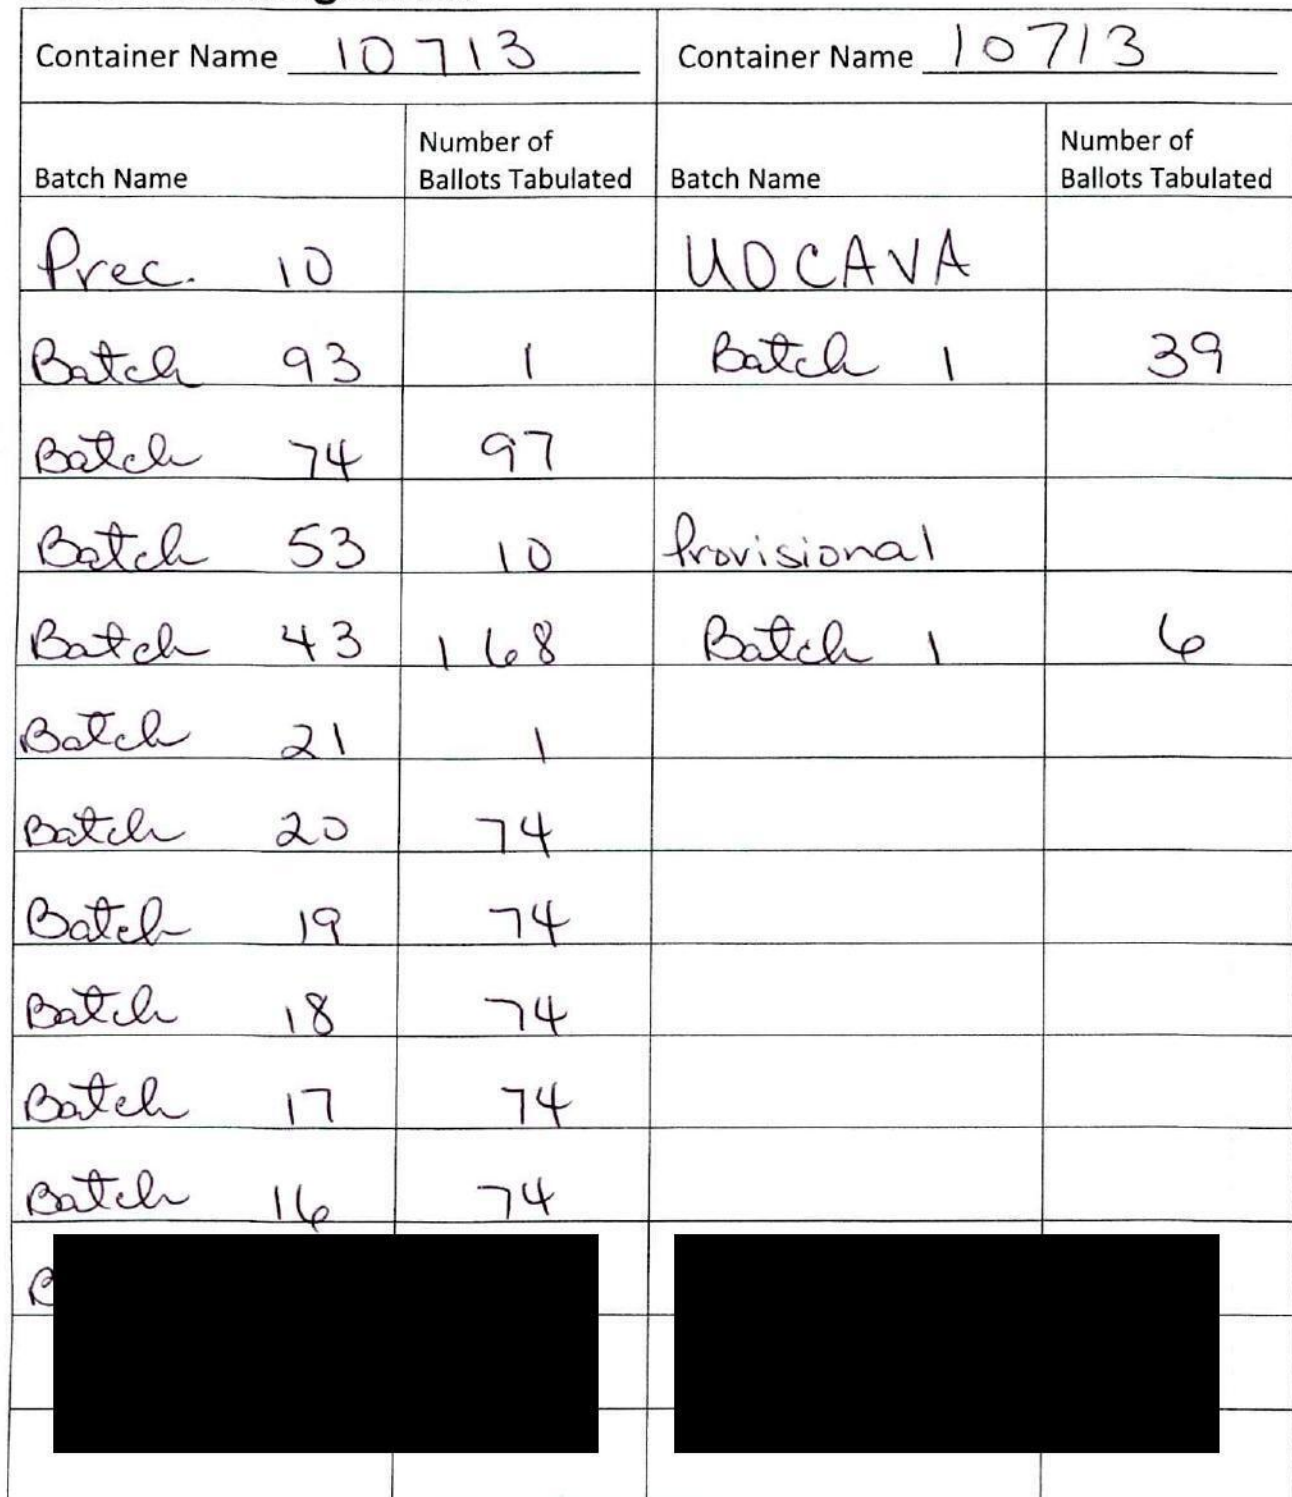 Container Name 10713 Container Name 10713
Batch Name Number of Ballots Tabulated Batch Name Number of Ballots Tabulated
Prec. 10 UOCAVA
Batch 93 1 Batch 1 39
Batch 74 97
Batch 53 10 Provisional
Batch 43 168 Batch 1 6
Batch 21 1
Batch 20 74
Batch 19 74
Batch 18 74
Batch 17 74
Batch 16 74